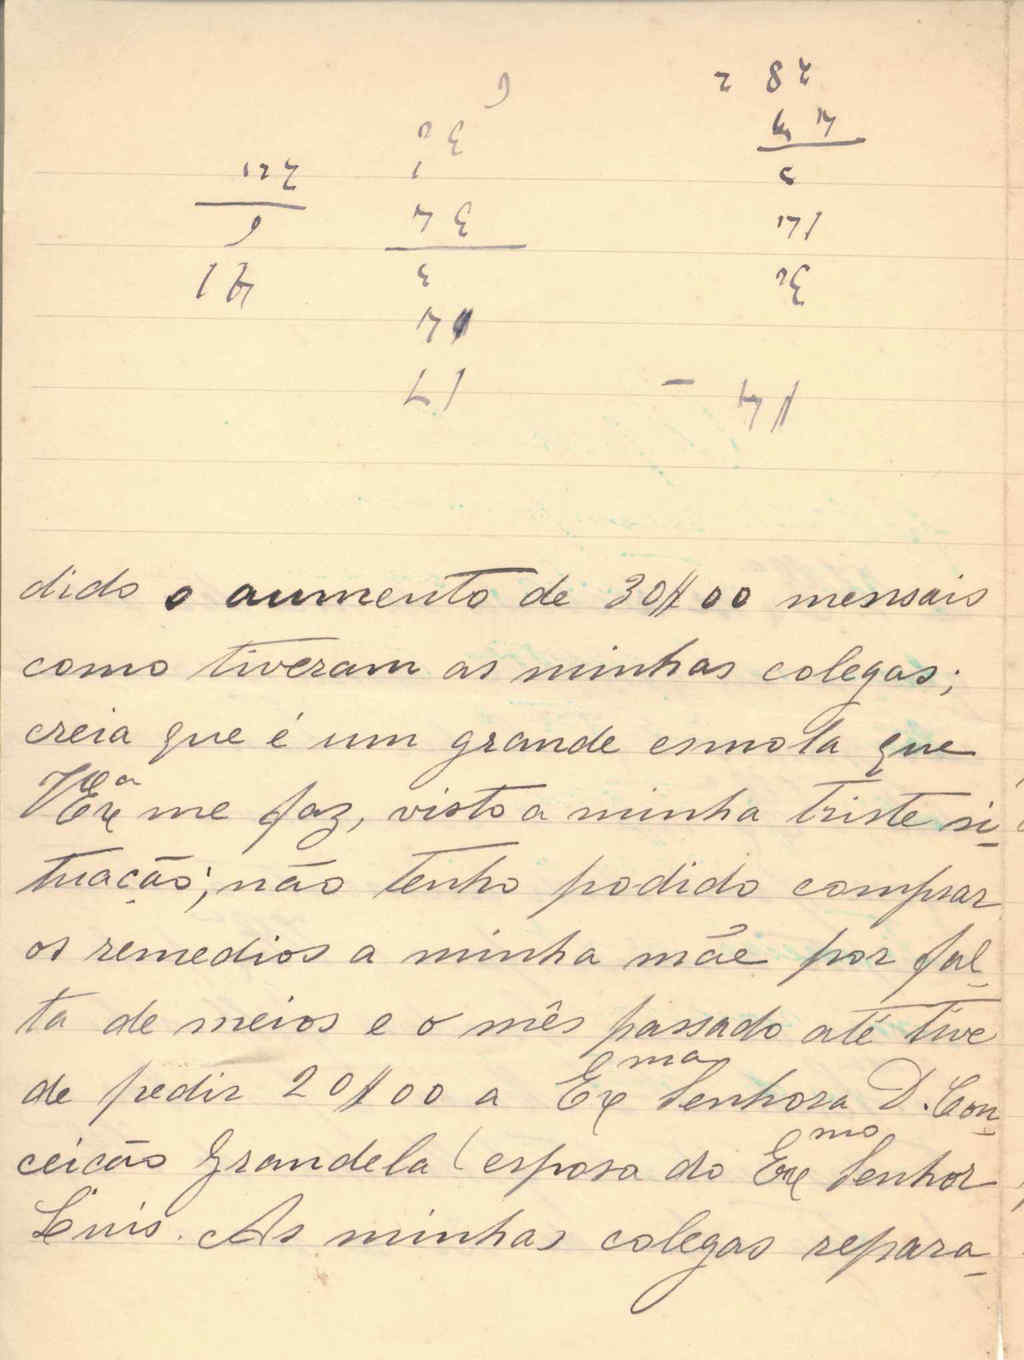 dido o aumento de 30$00 mensais
como tiveram as minhas colegas;
creia que é um grande esmola que
VExª me faz, visto a minha triste si-
tuação; não tenho podido comprar
os remedios a minha mãe por fal-
ta de meios e o mês passado até tive
de pedir 20$00 a Exma Senhora D. Con-
ceicão Grandela (esposa do Exmo Senhor
Luis. As minhas colegas repara-